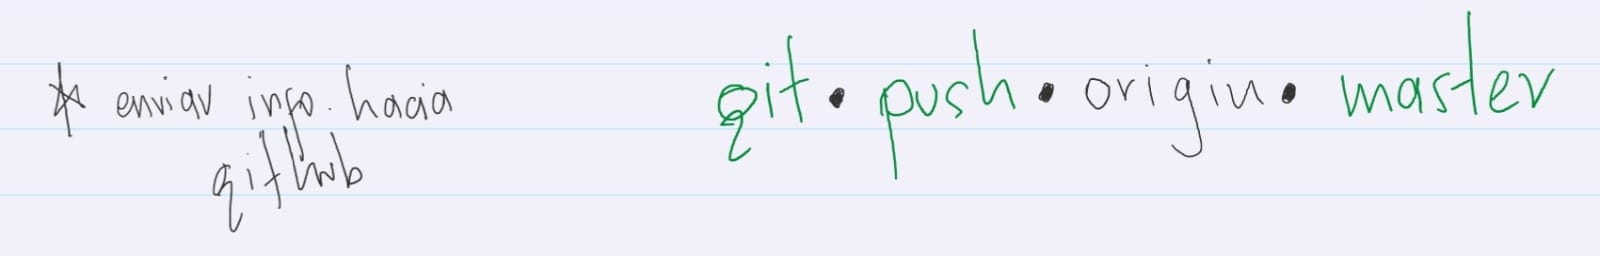 * enviar info. hacia
github
git • push • origin • master